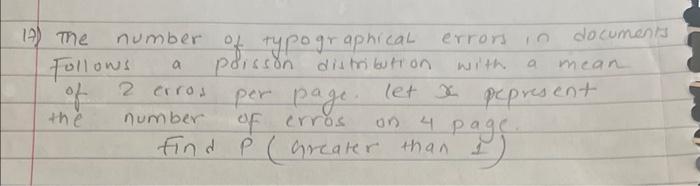 17) The number of typographical errors in documents
Follows a poisson distribution with a mean
of 2 erros per page. let x pepresent
the number of erros on 4 page.
find P (Greater than 1)